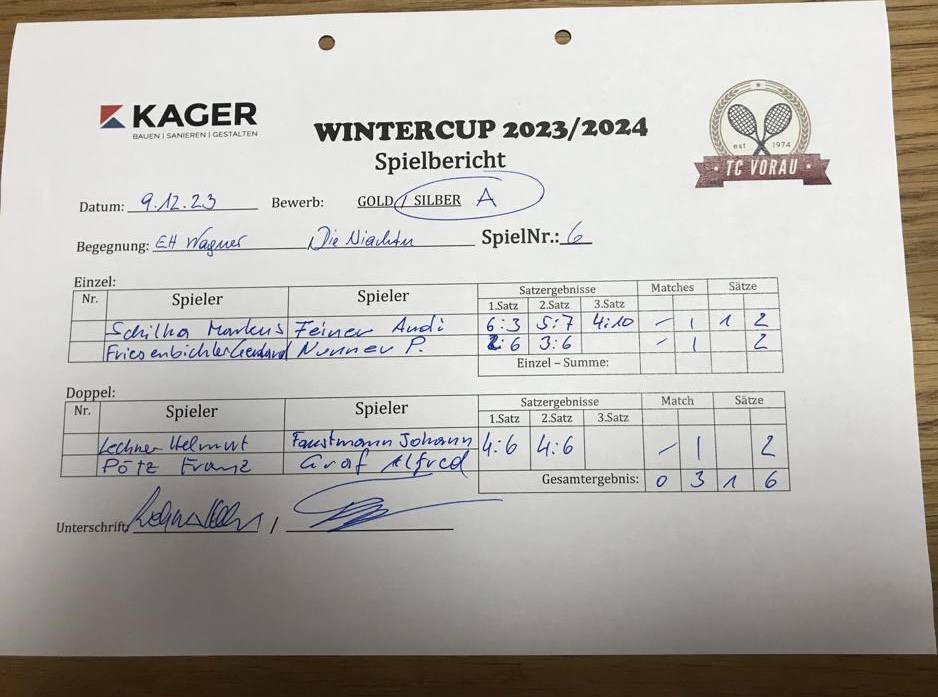 KAGER
BAUEN | SANIEREN | GESTALTEN
WINTERCUP 2023/2024
Spielbericht
est 1974
TC VORAU
Datum: 9.12.23 Bewerb: GOLD / SILBER A
Begegnung: EH Wagner / Die Niachtn SpielNr.: 6
Einzel:
Nr. Spieler Spieler Satzergebnisse Matches Sätze
1.Satz 2.Satz 3.Satz
Schilha Markus Feiner Andi 6:3 5:7 4:10 - 1 1 2
Friesenbichler Gerhard Nunner P. 2:6 3:6 - 1 2
Einzel – Summe:
Doppel:
Nr. Spieler Spieler Satzergebnisse Match Sätze
1.Satz 2.Satz 3.Satz
Lechner Helmut Faustmann Johann 4:6 4:6 - 1 2
Pötz Franz Graf Alfred
Gesamtergebnis: 0 3 1 6
Unterschrift: /